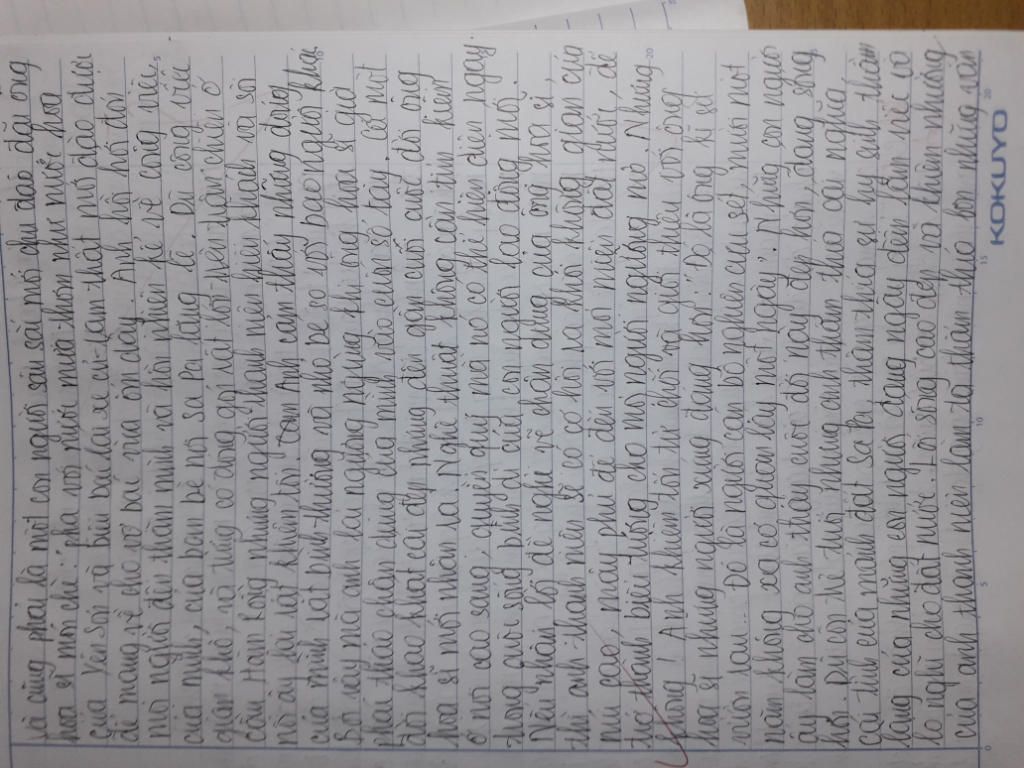 và cũng phải là một con người sâu sắc mới chịu đào dãi ông
họa sĩ mới chế: pha với nước mưa thơm như nước hoa
của Yên Sơn và bấm bác lái xe đi-lạm thật mở đạo dưới
để mang về cho vợ bác vừa ốm dậy. Anh hồ hởi đón
mà nghĩ đến thầm mình và hồn nhiên kể về công việc
của mình, của bạn bè nơi Sa Pa lặng lẽ. Dù công việc
gian khổ, và từng có đóng góp rất lớn nên hầm chiến ở
cầu Hàm Rồng nhưng người thanh niên hiền khánh và sôi
nổi ấy lại rất khiêm tốn. Anh cảm thấy những đóng góp
của mình rất bình thường và nhỏ bé so với bao người khác.
Bởi vậy mà anh lấy ngượng ngùng khi ông họa sĩ giở
phác thảo chân dung của mình vào cuốn sổ tay. Có một
đời khao khát cái đẹp nhưng đến gần cuối cuộc đời ông
họa sĩ mới nhận ra: Nghệ thuật không cần tìm kiếm
ở nơi cao sang, quyền quý mà nó có thể hiện diện ngay
trong cuộc sống bình dị của con người lao động mới.
Nếu nhận lời đề nghị vẽ chân dung của ông họa sĩ
thì anh thanh niên sẽ có cơ hội ra khỏi không gian của
núi cao, mây phủ để đến với mọi miền đất nước, để
trở thành biểu tượng cho mọi người ngưỡng mộ. Nhưng
không! Anh khiêm tốn từ chối và giới thiệu với ông
họa sĩ những người xứng đáng hơn: "Đó là ông kĩ sư
vườn rau... Đó là người cán bộ nghiên cứu sét, mười một
năm không xa cơ quan lấy một ngày". Những con người
ấy làm cho anh thấy cuộc đời này đẹp hơn, đáng sống
hơn. Dù còn trẻ tuổi nhưng anh thấm thía cái nghĩa,
cái tình của mảnh đất Sa Pa, thấm thía sự hy sinh thầm
lặng của những con người đang ngày đêm làm việc và
lo nghĩ cho đất nước. Lối sống cao đẹp và khiêm nhường
của anh thanh niên làm ta thấm thía hơn những vần
KOKUYO
0
5
10
15
20
5
15
20